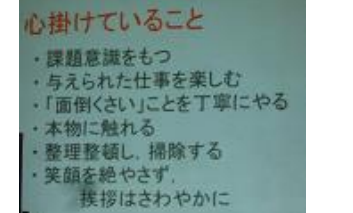 心掛けていること
・課題意識をもつ
・与えられた仕事を楽しむ
・「面倒くさい」ことを丁寧にやる
・本物に触れる
・整理整頓し、掃除する
・笑顔を絶やさず、
挨拶はさわやかに